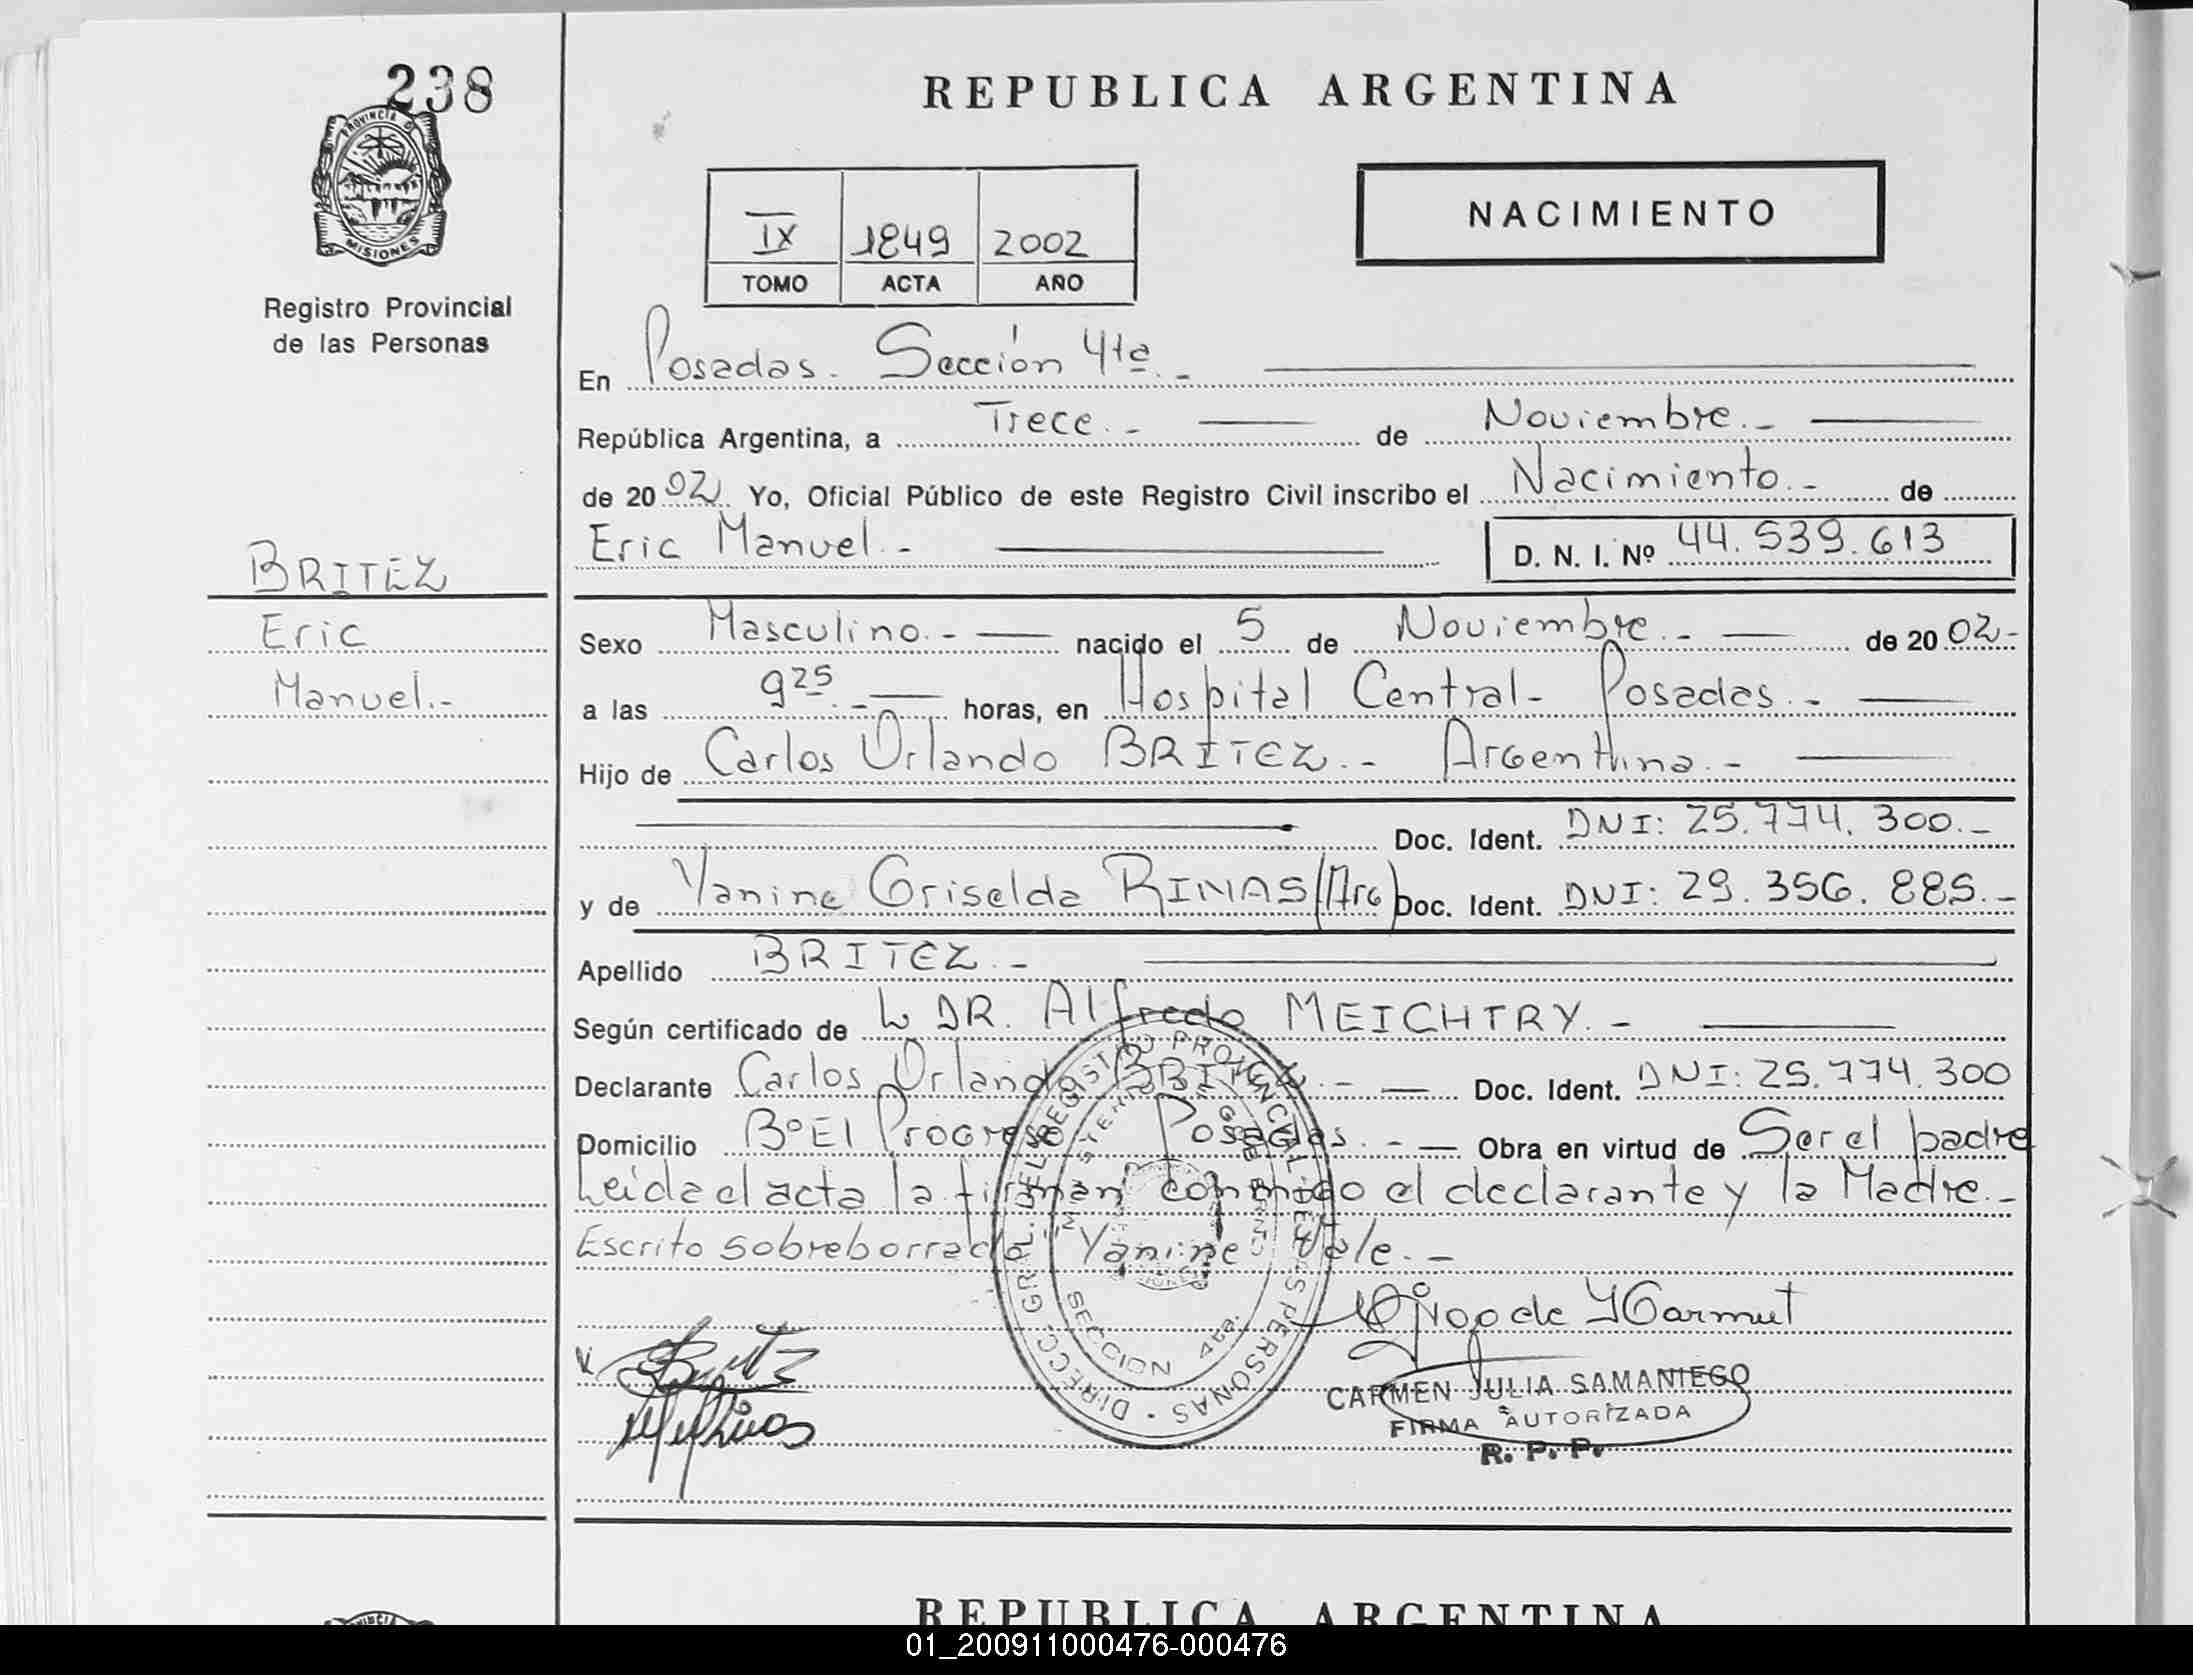 238
PROVINCIA D
MISIONES
Registro Provincial
de las Personas
BRITEZ
Eric
Manuel.-
REPUBLICA ARGENTINA
NACIMIENTO
IX 1849 2002
TOMO ACTA AÑO
En Posadas. Sección 4ta.-
República Argentina, a Trece.- de Noviembre.-
de 2002. Yo, Oficial Público de este Registro Civil inscribo el Nacimiento.- de
Eric Manuel.- D. N. I. Nº 44.539.613
Sexo Masculino.- nacido el 5 de Noviembre.- de 2002-
a las 9 25.- horas, en Hospital Central- Posadas.-
Hijo de Carlos Orlando BRITEZ.- Argentina.-
Doc. Ident. DNI: 25.774.300.-
y de Yanine Griselda RIVAS (Arg) Doc. Ident. DNI: 29.356.885.-
Apellido BRITEZ.-
Según certificado de DR. Alfredo MEICHTRY.-
Declarante Carlos Orlando BRITEZ.- Doc. Ident. DNI: 25.774.300
Domicilio Bº El Progreso Posadas.- Obra en virtud de Ser el padre
Leida el acta la firman conmigo el declarante y la Madre.-
Escrito sobreborrado "Yanine" Vale.-
DIRECC. GRAL. DEL REGISTRO PROVINCIAL DE LAS PERSONAS
SECCION 4ta.
CARMEN JULIA SAMANIEGO
FIRMA AUTORIZADA
R. P. P.
REPUBLICA ARGENTINA
01_200911000476-000476